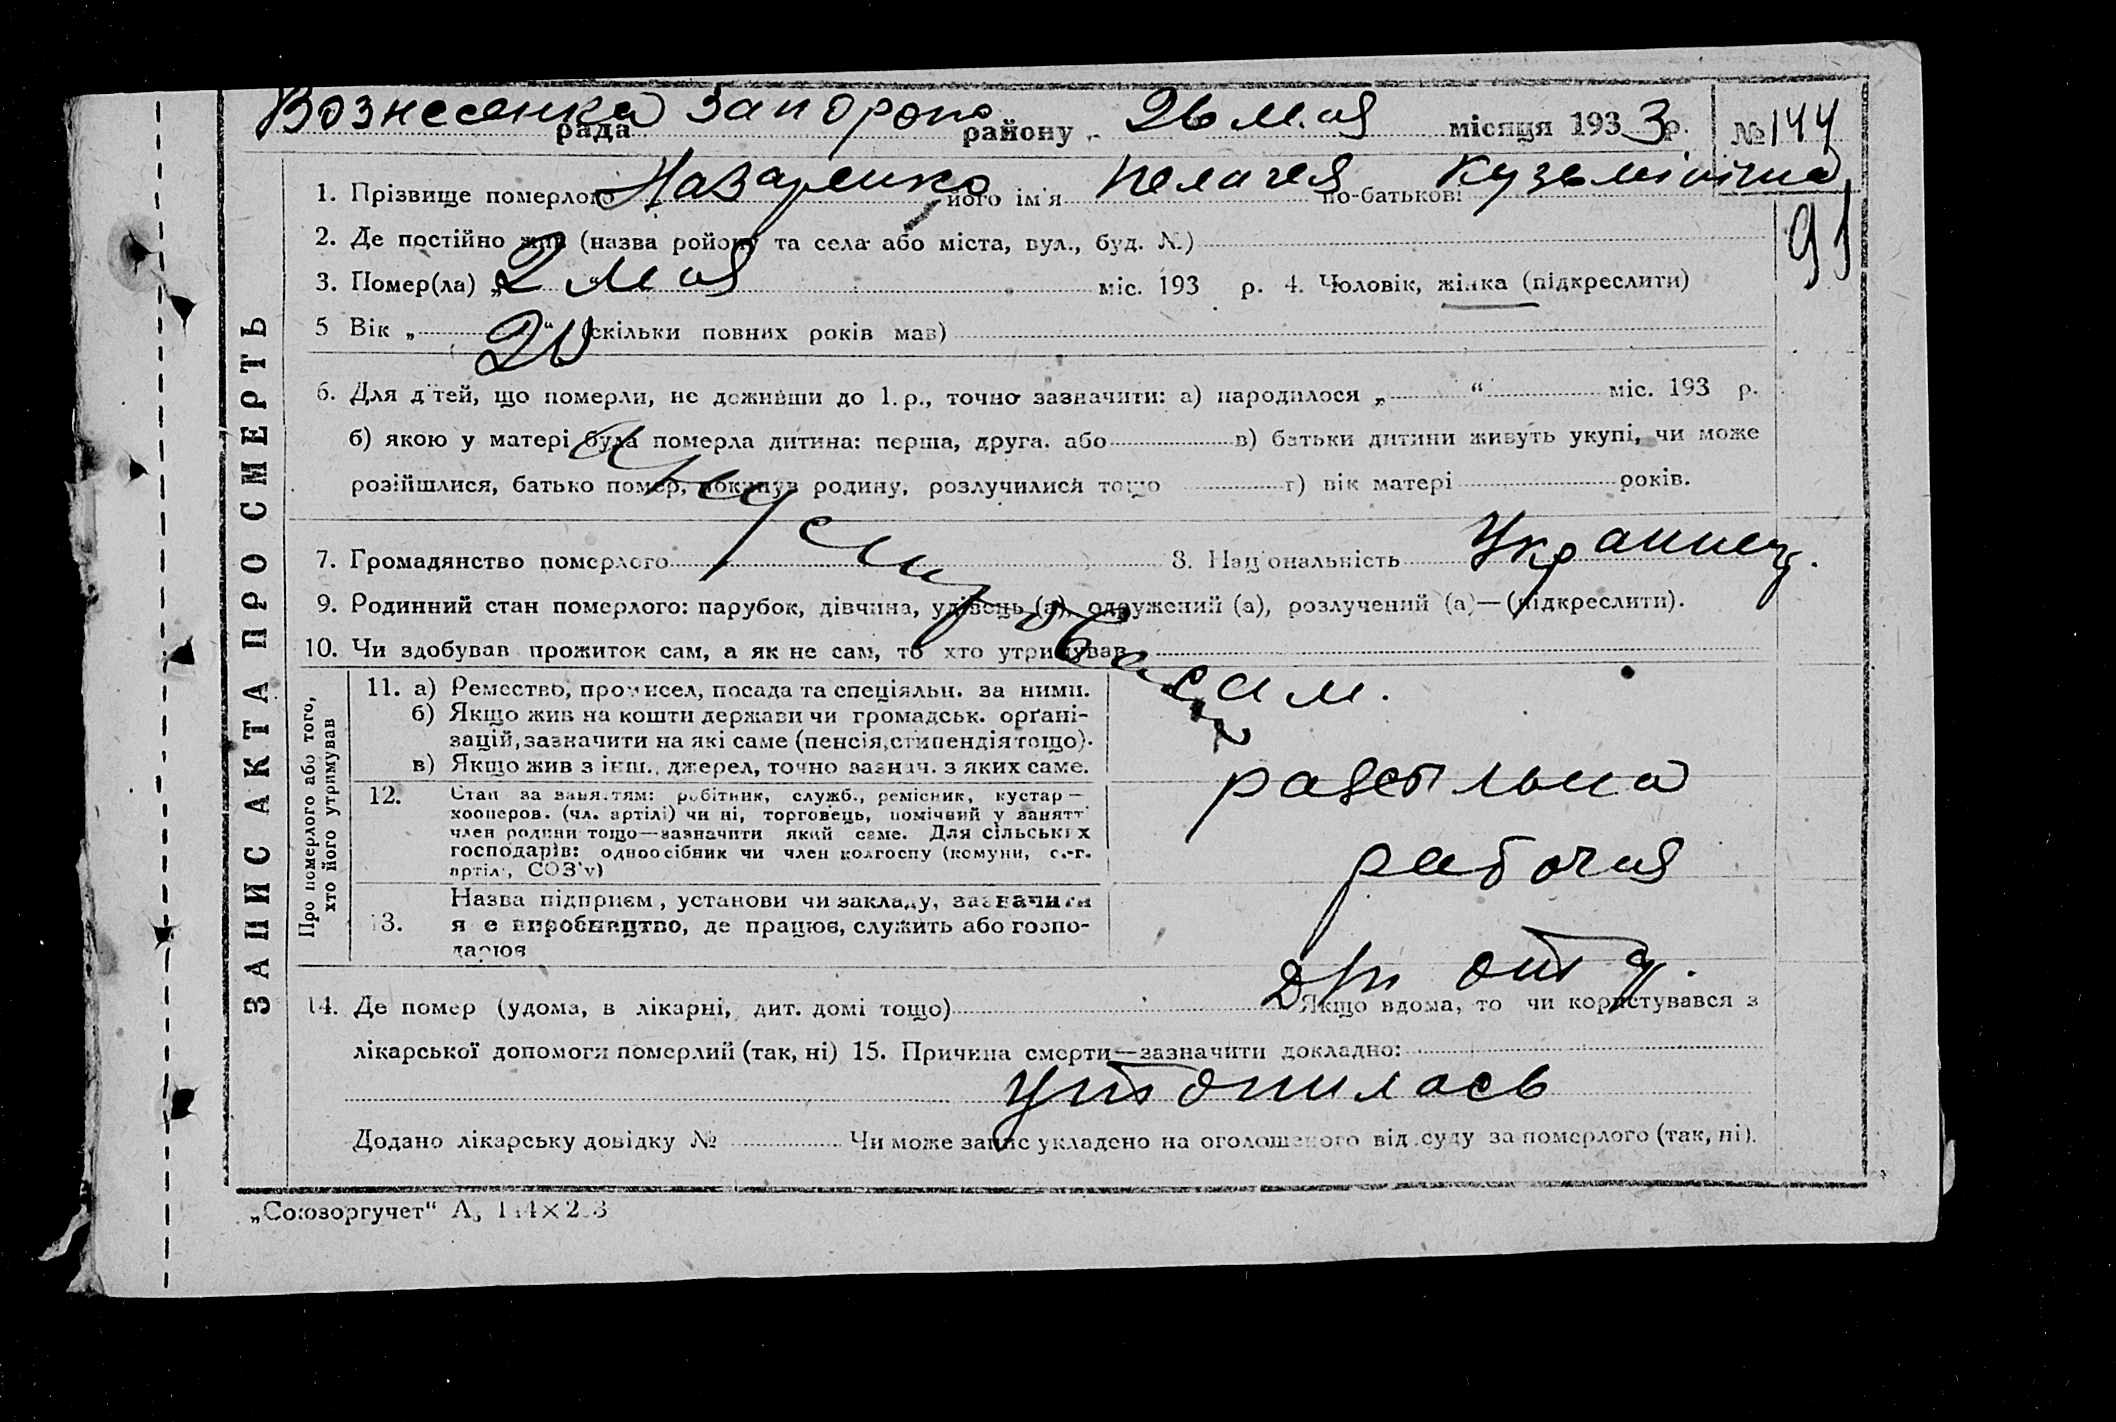 Вознесенка рада Запорож району 26 мая місяця 1933 р. № 144
1. Прізвище померлого Назаренко його ім'я Пелагея по-батькові Кузьмінічна
91
2. Де постійно жив (назва ройону та села або міста, вул., буд. №)
3. Помер(ла) „2" мая міс. 193 р. 4. Чоловік, жінка (підкреслити)
5 Вік „ " скільки повних років мав)
6. Для дітей, що померли, не доживши до 1. р., точно зазначити: а) народилося „ " міс. 193 р.
б) якою у матері була померла дитина: перша, друга. або в) батьки дитини живуть укупі, чи може
розійшлися, батько помер, покинув родину, розлучилися тощо г) вік матері років.
7. Громадянство померлого 8. Національність Украинец.
9. Родинний стан померлого: парубок, дівчина, удівець (а), одружений (а), розлучений (а)—(підкреслити).
10. Чи здобував прожиток сам, а як не сам, то хто утримував
сам.
ЗАПИС АКТА ПРО СМЕРТЬ
Про померлого або того, хто його утримував
11. а) Ремество, промисел, посада та спеціяльн. за ними.
б) Якщо жив на кошти держави чи громадськ. орґані-
зацій, зазначити на які саме (пенсія, стипендія тощо).
в) Якщо жив з інш., джерел, точно зазнач. з яких саме.
12. Стан за занятям: робітник, служб., ремісник, кустар—
кооперов. (чл. артілі) чи ні, торговець, помічний у занятт
член родини тощо—зазначити який саме. Для сільських
господарів: одноосібник чи член колгоспу (комуни, с.-г.
артілі, СОЗ'у)
рабочая
13. Назва підприєм, установи чи закладу, зазначити
яке виробництво, де працюв, служить або госпо-
дарюв
14. Де помер (удома, в лікарні, дит. домі тощо) Якщо вдома, то чи користувався з
лікарської допомоги померлий (так, ні) 15. Причина смерти—зазначити докладно:
утопилась
Додано лікарську довідку № Чи може запис укладено на оголошеного від суду за померлого (так, ні).
„Союзоргучет"